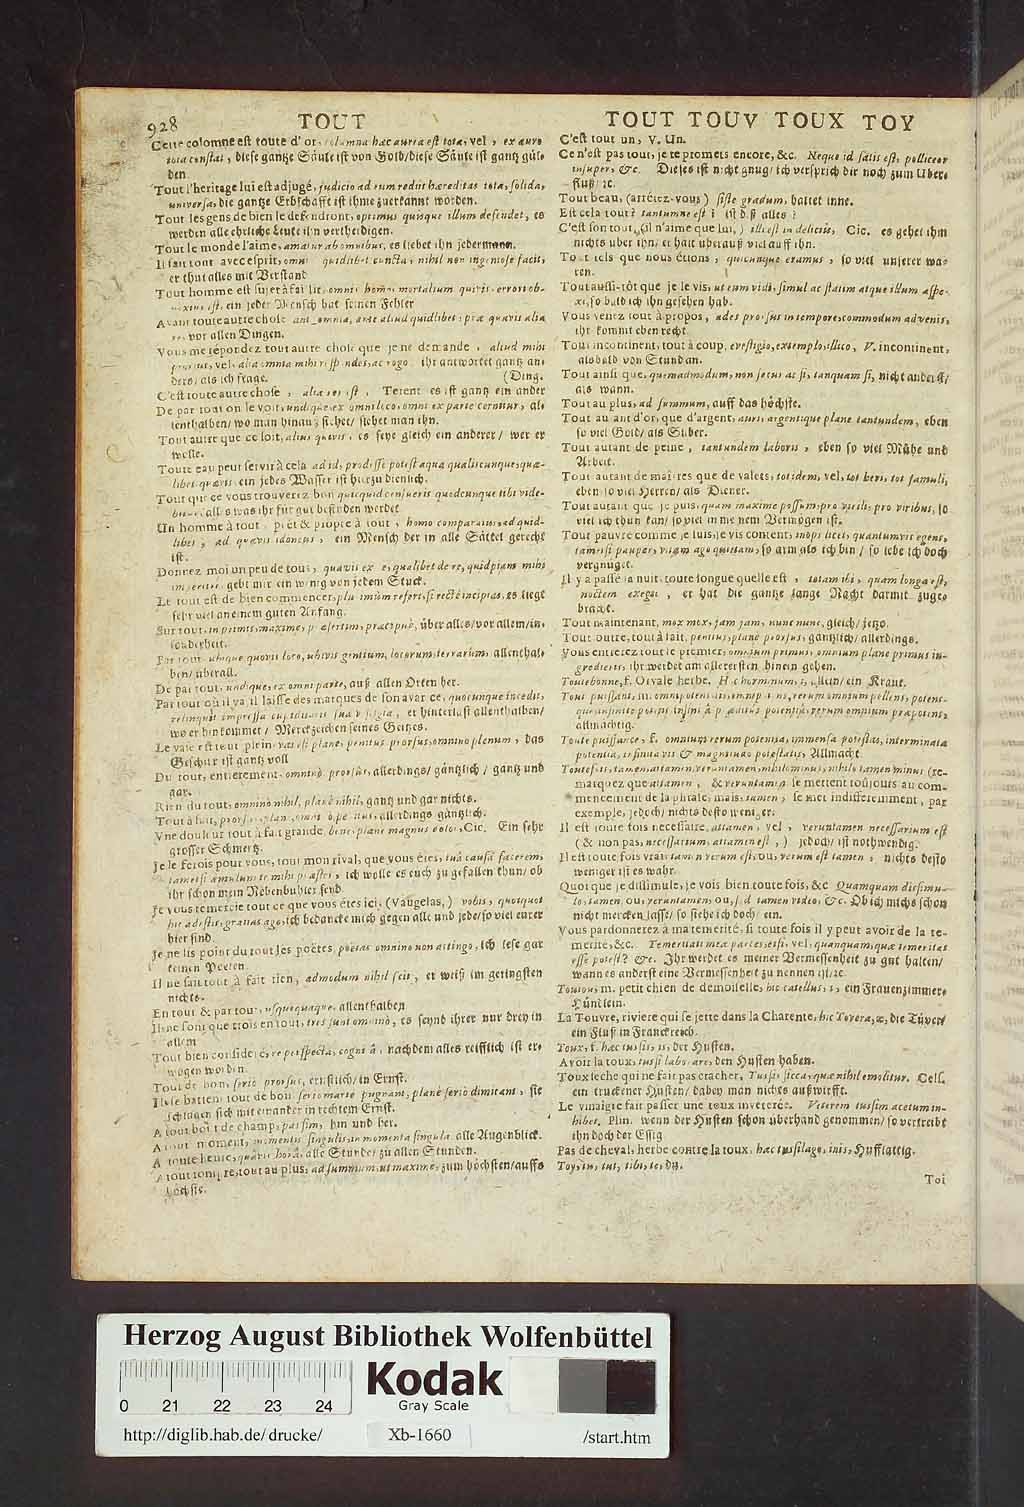 928 TOUT
Cette colomne est toute d'or, columna hæc aurea est tota, vel, ex auro
tota constat, diese gantze Säule ist von Gold/diese Säule ist gantz gül=
den
Tout l'heritage lui est adjugé, judicio ad eum rediit hæreditas tota, solida,
universa, die gantze Erbschafft ist ihme zuerkannt worden.
Tout les gens de bien le defendront, optimus quisque illum defendet, es
werden alle ehrliche Leute ihn vertheidigen.
Tout le monde l'aime, amatur ab omnibus, es liebet ihn jederman.
Il fait tout avec esprit, omnia quidlibet cuncta, nihil non ingeniose facit,
er thut alles mit Verstand
Tout homme est sujet à faillir, omnis homo, mortalium quivis errori ob-
noxius est, ein jeder Mensch hat seinen Fehler
Avant toute autre chose ante omnia, ante aliud quidlibet: præ quavis alia
re, vor allen Dingen.
Vous me répondez tout autre chose que je ne demande, aliud mihi
vel, alia omnia mihi respondes, ac rogo ihr antwortet gantz an=
ders/als ich frage. (Ding.
C'est toute autre chose, alia res est, Terent es ist gantz ein ander
De par tout on le voit, undique, ex omni loco, omni ex parte cernitur, al=
lenthalben/wo man hinaus siehet/siehet man ihn.
Tout autre que ce soit, alius quivis, es seye gleich ein anderer/wer er
wolle.
Toute eau peut servir à cela ad id, prodesse potest aqua qualiscunque, quæ-
libet quævis ein jedes Wasser ist hierzu dienlich.
Tout que ce vous trouverez bon quicquid censueris quodcunque tibi vide-
alles was ihr für gut befinden werdet
Un homme à tout prêt & propre à tout, homo comparatus, ad quid-
libet, ad quævis idoneus, ein Mensch der in alle Sättel gerecht
ist.
Donnez moi un peu de tout, quavis ex re, qualibet de re, quidpiam mihi
gebt mir ein wenig von jedem Stuck.
Le tout est de bien commencer, plurimum refert, si rectè incipias, es liegt
sehr viel an einem guten Anfang.
Sur tout, in primis, maxime, præsertim, præcipuè, über alles/vor allem/in=
sonderheit.
Par tout ubique quovis loco, ubivis gentium, locorum, terrarum, allenthal=
ben/überall.
De par tout, undique, ex omni parte, auß allen Orten her.
Par tout où il va, il laisse des marques de son avarice, quocunque incedit,
relinquit impressa cupiditatis suæ vestigia, er hinterlast allenthalben/
wo er hinkommet/Merckzeichen seines Geitzes.
Le vase est tout plein, vas est planè, penitus prorsus, omnino plenum, das
Geschirr ist gantz voll
Du tout, entierement, omninò prorsus, allerdings/gäntzlich/gantz und
gar.
Rien du tout, omnino nihil, planè nihil, gantz und gar nichts.
Tout à fait, prorsus, planè, omnino, penitus, allerdings gäntzlich.
Vne douleur tout à fait grande, bene, plane magnus dolor, Cic. Ein sehr
grosser Schmertz.
Je le ferois pour vous, tout mon rival, que vous étes, tuâ causâ facerem,
tametsi æmulum te mihi præstes, ich wolle es euch zu gefallen thun/ob
ihr schon mein Nebenbuhler seyd
Je vous remercie tout ce que vous étes ici, (Vaugelas,) vobis, quotquot
hic adestis, gratias ago, ich bedancke mich gegen alle und jede/so viel eurer
hier sind.
Je ne lis point du tout les poëtes, poëtas omnino non attingo, ich lese gar
keinen Poeten
Il ne sait tout à fait rien, admodum nihil scit, er weiß im geringsten
nichts.
En tout & par tout, usquequaque, allenthalben
Ils ne sont que trois en tout, tres sunt omninò, es seynd ihrer nur drey in
allem
Tout bien considéré, re perspecta, cognitâ, nachdem alles reifflich ist er=
wogen worden.
Tout de bon, serio prorsus, ernstlich/in Ernst.
Ils se battent tout de bon serio marte pugnant, planè serio dimicant, sie
schlagen sich mit einander in rechtem Ernst.
A tout bout de champ, passim, hin und her.
A tout moment, momentis singulis, in momenta singula alle Augenblick.
A toute heure, quâvis horâ, alle Stunde/zu allen Stunden.
A tout rompre, tout au plus, ad summum, ut maxime, zum höchsten/auffs
höchste.
TOUT TOUV TOUX TOY
C'est tout un, V. Un.
Ce n'est pas tout, je te promets encore, &c. Neque id satis est, polliceor
insuper, &c. Dieses ist nicht gnug/ich versprich dir noch zum Uber=
fluß/ꝛc.
Tout beau, (arrêtez-vous) siste gradum, haltet inne.
Est cela tout? tantumne est? ist diß alles?
C'est son tout, (il n'aime que lui,) illi est in deliciis, Cic. es gehet ihm
nichts über ihn/er hält überauß viel auff ihn.
Tout tels que nous étions, quicunque eramus, so viel unserer wa=
ren.
Tout aussi-tôt que je le vis, ut eum vidi, simul ac statim atque illum aspe-
xi, so bald ich ihn gesehen hab.
Vous venez tout à propos, ades prorsus in tempore, commodum advenis,
ihr kommt eben recht
Tout incontinent, tout à coup, è vestigio, extemplo, illico, V. incontinent,
alsbald von Stund an.
Tout ainsi que, quemadmodum, non secus ac si, tanquam si, nicht anderst/
als wann.
Tout au plus, ad summum, auff das höchste.
Tout autant d'or, que d'argent, auri, argentique plane tantundem, eben
so viel Gold/als Silber.
Tout autant de peine, tantundem laboris, eben so viel Mühe und
Arbeit.
Tout autant de maîtres que de valets, totidem, vel, tot heri, tot famuli,
eben so viel Herren/als Diener.
Tout autant que je puis, quam maxime possum, pro virili, pro viribus, so
viel ich thun kan/so viel in meinem Vermögen ist.
Tout pauvre comme je suis, je vis content, inops licet, quantumvis egens,
tametsi pauper, vitam ago quietam, so arm als ich bin/so lebe ich doch
vergnüget.
Il y a passé la nuit, toute longue quelle est, totam ibi, quam longa est,
noctem exegit, er hat die gantze lange Nacht darmit zuge=
bracht.
Tout maintenant, mox mox, jam jam, nunc nunc, gleich/jetzo.
Tout outre, tout à fait, penitus, planè prorsus, gäntzlich/allerdings.
Vous entrerez tout le premier, omnium primus, omnium plane primus in-
gredieris, ihr werdet am allerersten hinein gehen.
Toutebonne, f. Orvale herbe. Hoc horminum, i, ein Kraut.
Tout puissant, m. omnipotens, rerum omnium pollens, potens,
infinitâ præditus potentiâ, rerum omnium præpotens,
allmächtig.
Toute puissance, f. omnium rerum potentia, immensa potestas, interminata
potentia, infinita vis & magnitudo potestatis, Allmacht
Toutefois, tamen, attamen, veruntamen, nihilominus, nihilo tamen minus (re-
marquez que attamen, & veruntamen se mettent toûjours au com-
mencement de la phrase, mais, tamen, se met indifferemment, par
exemple, jedoch/nichts desto weniger:
Il est toute fois necessaire, attamen, vel, veruntamen necessarium est
(& non pas, necessarium, attamen est,) jedoch/ist nothwendig.
Il est toute fois vrai tamen verum est, ou, verum est tamen, nichts desto
weniger ist es wahr.
Quoi que je dissimule, je vois bien toute fois, &c Quamquam dissimu-
lo, tamen, ou, veruntamen, ou, sed tamen video, &c. Ob ich michs schon
nicht mercken lasse/so siehe ich doch/ein.
Vous pardonnerez à ma temerité, si toute fois il y peut avoir de la te-
merité, &c. Temeritati meæ parces, etsi, vel, quanquam, quæ temeritas
esse potest? &c. Ihr werdet es meiner Vermessenheit zu gut halten/
wann es anderst eine Vermessenheit zu nennen ist/ꝛc.
Toutou, m. petit chien de demoiselle, hic catellus, i, ein Frauenzimmer=
Hündlein.
La Touvre, riviere qui se jette dans la Charente, hæc Tovera, æ, die Tüver/
ein Fluß in Franckreich.
Toux, f. hæc tussis, is, der Husten.
Avoir la toux, tussi laborare, den Husten haben.
Toux seche qui ne fait pas cracher, Tussis sicca, quæ nihil emolitur. Cels.
ein truckener Husten/dabey man nichts außwirfft.
Le vinaigre fait passer une toux inveterée. Veterem tussim acetum in-
hibet. Plin. wenn der Husten schon überhand genommen/so vertreibt
ihn doch der Essig
Pas de cheval, herbe contre la toux, hæc tussilago, inis, Hufflattig.
Toy, tu, tui, tibi, te, du.
Toi
Herzog August Bibliothek Wolfenbüttel
0 21 22 23 24
Kodak
Gray Scale
http://diglib.hab.de/drucke/ Xb-1660 /start.htm